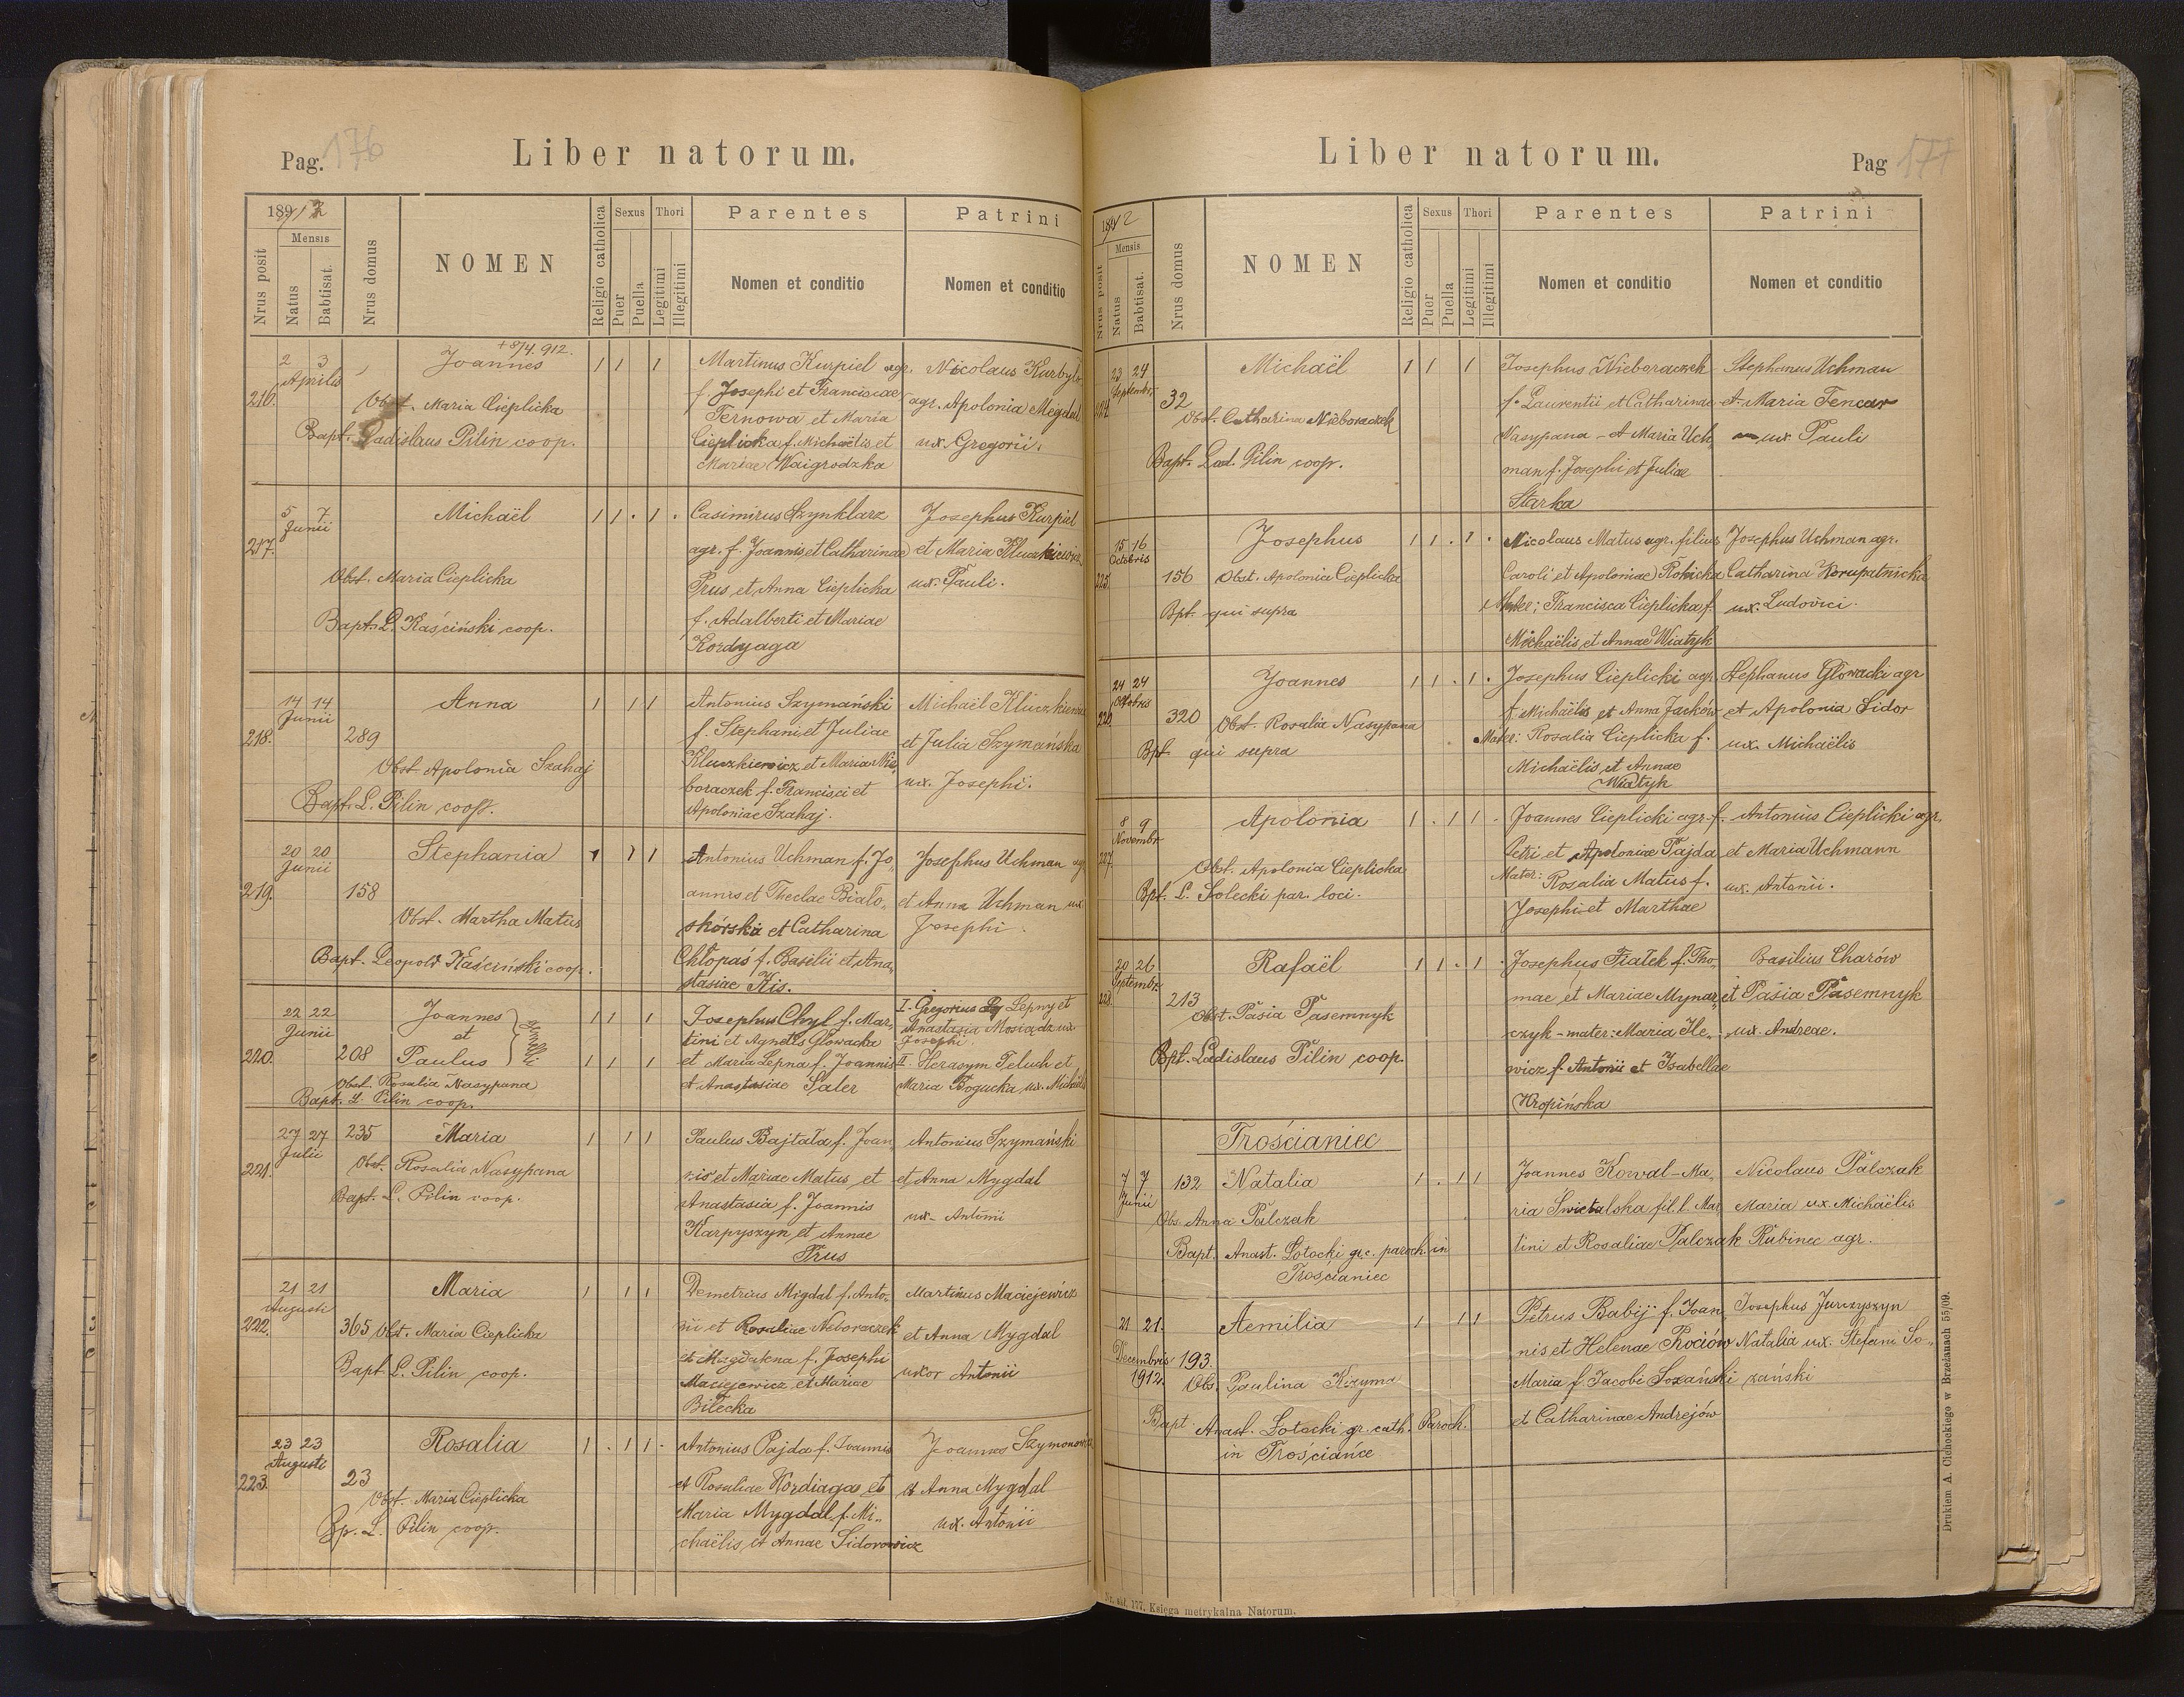 Pag. 176
Liber natorum.
189 1912
Nrus posit
Mensis
Natus
Babtisat.
Nrus domus
NOMEN
Religio catholica
Sexus
Puer
Puella
Thori
Legitimi
Illegitimi
Parentes
Nomen et conditio
Patrini
Nomen et conditio
216.
2 3
Aprilis
+ 8/4. 912.
Joannes
1 1 1
Obst. Maria Cieplicka
Bapt. Ladislaus Pilin coop.
Martinus Kurpiel agr.
f. Josephi et Franciscae
Ternowa et Maria
Cieplicka f. Michaëlis et
Mariae Waigrodzka
Nicolaus Kurbyło
agr. Apolonia Megdal
ux. Gregorii.
217.
5 7
Junii
Michaël
1 1 . 1 .
Obst. Maria Cieplicka
Bapt. L. Kaściński coop.
Casimirus Szynklarz
agr. f. Joannis et Catharinae
Prus et Anna Cieplicka
f. Adalberti et Mariae
Kordyaga
Josephus Kurpiel
et Maria Kluczkiewicz
ux. Pauli.
218.
14 14
Junii
289
Anna
1 1 1
Obst. Apolonia Szahaj
Bapt. L. Pilin coop.
Antonius Szymański
f. Stephani et Juliae
Kluczkiewicz et Maria Nie
boraczek f. Francisci et
Apoloniae Szahaj.
Michaël Kluczkiewicz
et Julia Szymańska
ux. Josephi.
219.
20 20
Junii
158
Stephania
1 1 1
Obst. Martha Matus
Bapt. Leopold Kaściński coop.
Antonius Uchman f. Jo
annis et Theclae Biało„
skórska et Catharina
Chłopaś f. Basilii et Ana„
stasiae Kis.
Josephus Uchman agr
et Anna Uchman ux
Josephi.
220.
22 22
Junii
208
Joannes
et
Paulus
gemelli
1 1 1
1 1 1
Obst. Rosalia Nasypana
Bapt. L. Pilin coop.
Josephus Chyl f. Mar„
tini et Agnetis Głowacka
et Maria Lepna f. Joannis
et Anastasiae Saler
I. Gregorius Lepny et
Anastasia Mosiądz ux.
Josephi.
II. Herasym Teluch et
Maria Bogucka, ux. Michaëlis
221.
27 27
Julii
235
Maria
1 1 1
Obst. Rosalia Nasypana
Bapt. L. Pilin coop.
Paulus Bajtala f. Joan
nis et Mariae Matus et
Anastasia f. Joannis
Karpyszyn et Annae
Prus
Antonius Szymański
et Anna Mygdal
ux. Antonii
222.
21 21
Augusti
365
Maria
1 1 1
Obst. Maria Cieplicka
Bapt. L. Pilin coop.
Demetrius Migdal f. Anto„
nii et Rosaliae Nieboraczek
et Magdalena f. Josephi
Maciejewicz et Mariae
Bilecka
Martinus Maciejewicz
et Anna Mygdal
uxor Antonii
223.
23 23
Augusti
23
Rosalia
1 . 1 1 .
Obst. Maria Cieplicka
Bp. L. Pilin coop.
Antonius Pajda f. Joannis
et Rosaliae Kordiagas et
Maria Mygdal f. Mi„
chaëlis et Annae Sidorowicz
Joannes Szymonowicz
et Anna Mygdal
ux. Antonii
Liber natorum.
Pag 177
1912
Nrus posit
Mensis
Natus
Babtisat.
Nrus domus
NOMEN
Religio catholica
Sexus
Puer
Puella
Thori
Legitimi
Illegitimi
Parentes
Nomen et conditio
Patrini
Nomen et conditio
224.
23 24
Septembr.
32
Michaël
1 1 1
Obst. Catharina Nieboraczek
Bapt. Lad. Pilin coop.
Josephus Nieboraczek
f. Laurentii et Catharinae
Nasypana – et Maria Uch
man f. Josephi et Juliae
Starka
Stephanus Uchman
et Maria Tencar
ux. Pauli
225.
15 16
Octobris
156
Josephus
1 1 . 1 .
Obst. Apolonia Cieplicka
Bpt. qui supra
Nicolaus Matus agr. filius
Caroli et Apoloniae Rokicka
Mater: Francisca Cieplicka f.
Michaëlis et Annae Wiatyk
Josephus Uchman agr.
Catharina Korupatnicka
ux. Ludovici.
226.
24 24
Octobris
320
Joannes
1 1 . 1 .
Obst. Rosalia Nasypana
Bpt. qui supra
Josephus Cieplicki agr
f. Michaëlis et Anna Jacków
Mater: Rosalia Cieplicka f.
Michaëlis et Annae
Wiatyk
Stephanus Głowacki agr
et Apolonia Sidor
ux. Michaëlis
227.
8 9
Novembr
Apolonia
1 . 1 1 .
Obst. Apolonia Cieplicka
Bpt. L. Solecki par. loci.
Joannes Cieplicki agr. f.
Petri et Apoloniae Pajda
Mater: Rosalia Matus f.
Josephi et Marthae
Antonius Cieplicki agr.
et Maria Uchmann
ux. Antonii.
228.
20 26
Septembr.
213
Rafaël
1 1 . 1 .
Obst. Pasia Pasemnyk
Bpt. Ladislaus Pilin coop.
Josephus Fiałek f. Tho„
mae et Mariae Mynar„
czyk – mater: Maria He„
wicz f. Antonii et Isabellae
Kropińska
Basilius Charów
et Pasia Pasemnyk
ux. Andreae.
Trościaniec
7 7
Junii
132
Natalia
1 . 1 1
Obs. Anna Palczak
Bapt. Anast. Łotocki gr. c. paroch. in
Trościaniec
Joannes Kowal – Ma„
ria Swietalska fil. l. Mar„
tini et Rosaliae Palczak
Nicolaus Palczak
Maria ux. Michaëlis
Rubinec agr.
21. 21.
Decembris
1912.
193.
Aemilia
1 1 1
Obs. Paulina Krzyma
Bapt. Anast. Łotocki gr. cath. Paroch.
in Trościańce
Petrus Babij f. Joan„
nis et Helenae Rociów
Maria f. Jacobi Łozański
et Catharinae Andrejów
Josephus Jurczyszyn
Natalia ux. Stefani Ło„
zański
Drukiem A. Cichockiego w Brzeżanach 55/09.
Nr. skł. 177. Księga metrykalna Natorum.